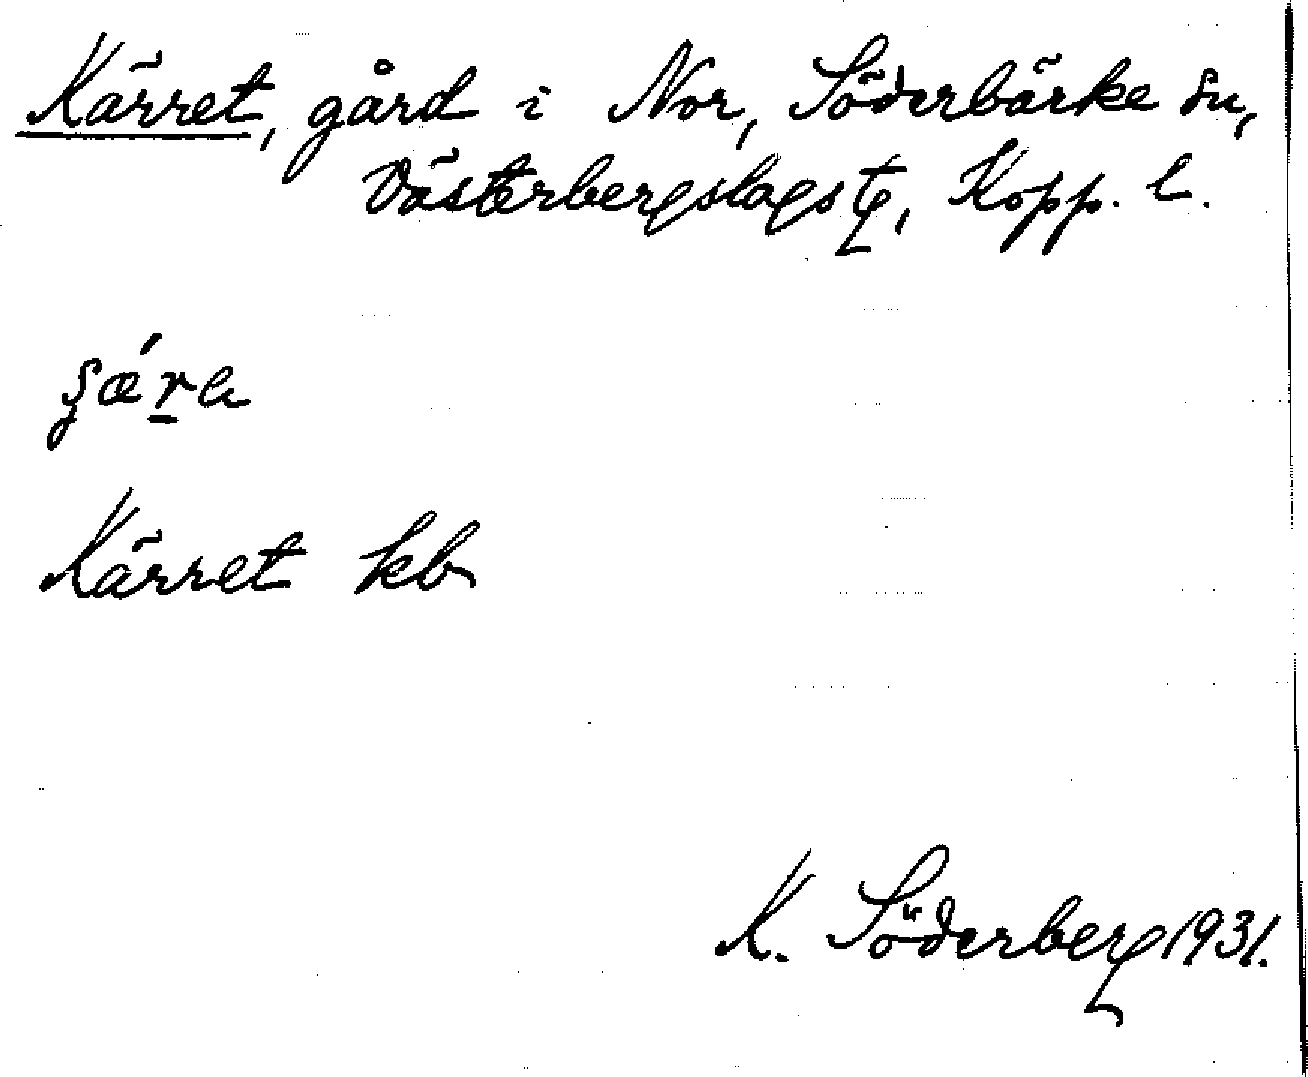 Kärret, gård i Nor, Söderbärke sn,
Västerbergslags tg, Kopp. l.
Kärret kb
K. Söderberg 1931.